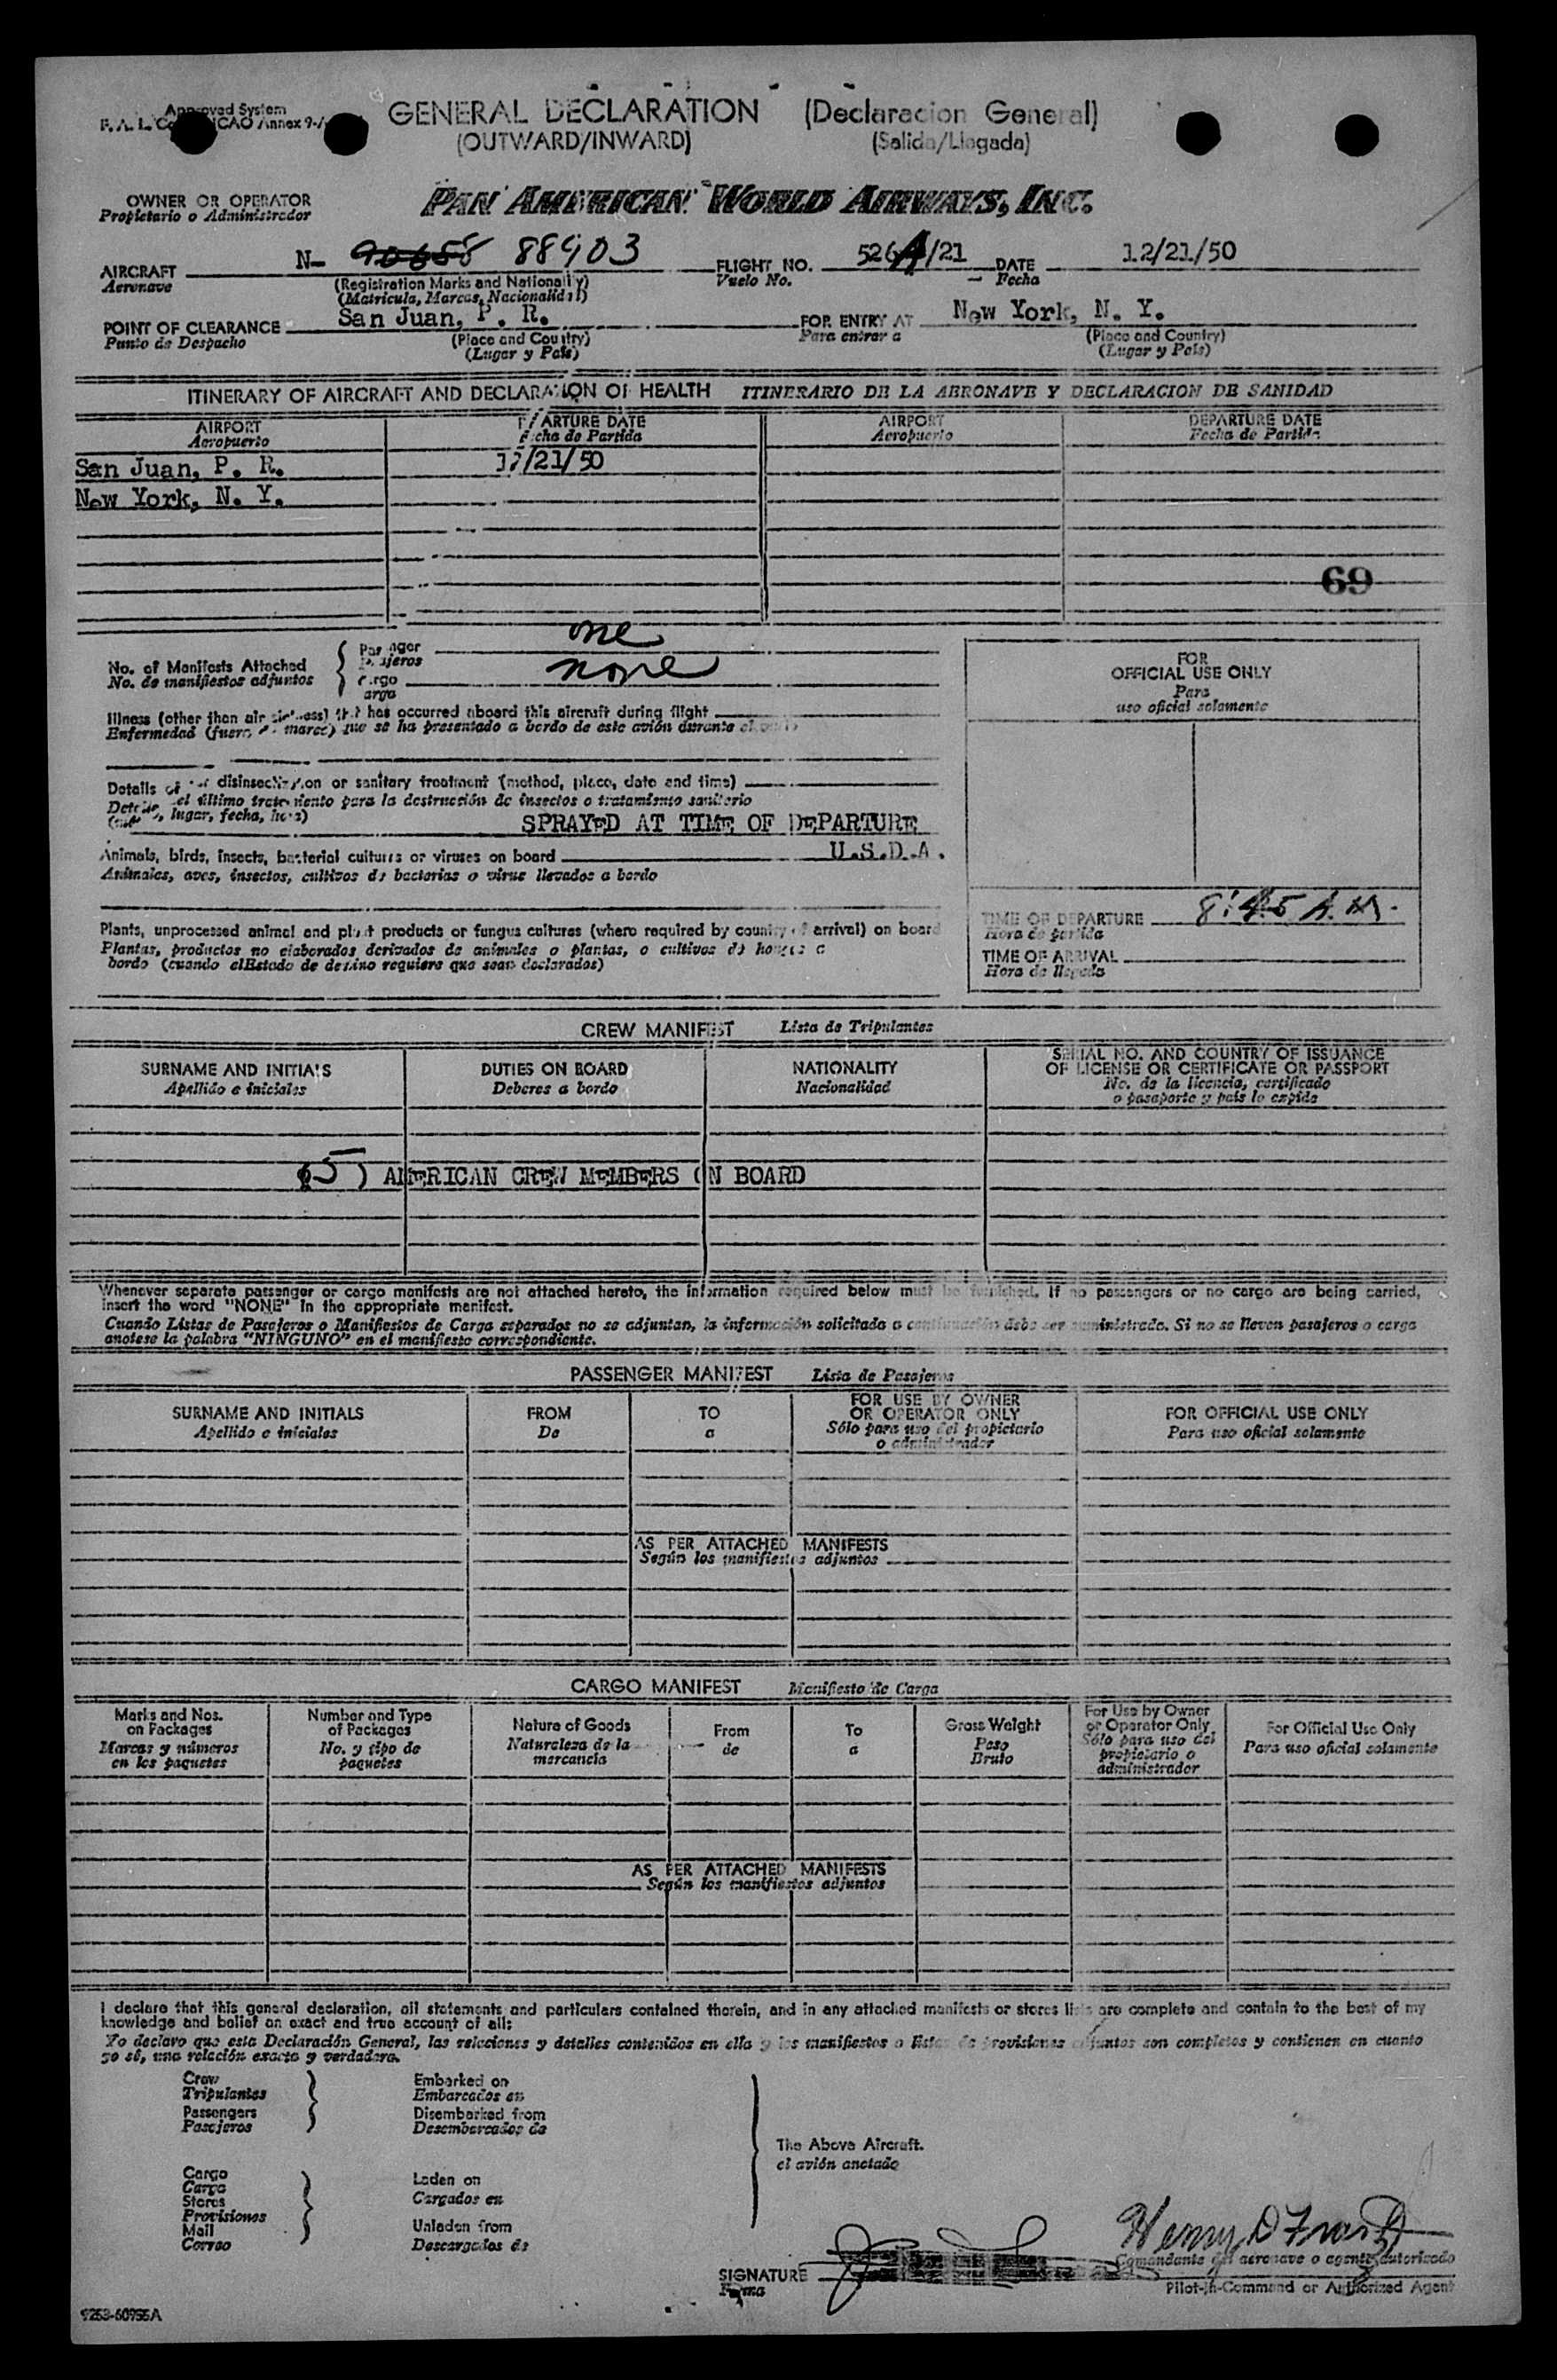 Approved System
GENERAL DECLARATION (Declaracion General)
(OUTWARD/INWARD) (Salida/Llegada)
OWNER OR OPERATOR
Propietario o Administrador
PAN AMERICAN WORLD AIRWAYS, INC.
AIRCRAFT N- 90688 88903 FLIGHT NO. 526A/21 DATE 12/21/50
Aeronave (Registration Marks and Nationality) Vuelo No. Fecha
(Matricula, Marcas, Nacionalidad)
POINT OF CLEARANCE San Juan, P. R. FOR ENTRY AT New York, N. Y.
Punto de Despacho (Place and Country) Para entrar a (Place and Country)
(Lugar y País) (Lugar y País)
ITINERARY OF AIRCRAFT AND DECLARATION OF HEALTH ITINERARIO DE LA AERONAVE Y DECLARACION DE SANIDAD
AIRPORT DEPARTURE DATE AIRPORT DEPARTURE DATE
Aeropuerto Fecha de Partida Aeropuerto Fecha de Partida
San Juan, P. R. 12/21/50
New York, N. Y.
69
No. of Manifests Attached Passenger one
No. de manifiestos adjuntos Pasajeros
Cargo none
Carga
Illness (other than air sickness) that has occurred aboard this aircraft during flight
Enfermedad (fuera de mareo) que se ha presentado a bordo de este avión durante el
Details of last disinsectization or sanitary treatment (method, place, date and time)
Detalle del último tratamiento para la destrucción de insectos o tratamiento sanitario
lugar, fecha, hora)
SPRAYED AT TIME OF DEPARTURE
Animals, birds, insects, bacterial cultures or viruses on board U.S.D.A.
Animales, aves, insectos, cultivos de bacterias o virus llevados a bordo
Plants, unprocessed animal and plant products or fungus cultures (where required by country of arrival) on board
Plantas, productos no elaborados derivados de animales o plantas, o cultivos de hongos a
bordo (cuando elEstado de destino requiere que sean declarados)
FOR
OFFICIAL USE ONLY
Para
uso oficial solamente
TIME OF DEPARTURE 8:45 A.M.
Hora de partida
TIME OF ARRIVAL
Hora de llegada
CREW MANIFEST Lista de Tripulantes
SURNAME AND INITIALS DUTIES ON BOARD NATIONALITY SERIAL NO. AND COUNTRY OF ISSUANCE
OF LICENSE OR CERTIFICATE OR PASSPORT
Apellido e iniciales Deberes a bordo Nacionalidad No. de la licencia, certificado
o pasaporte y país lo expide
(5) AMERICAN CREW MEMBERS ON BOARD
Whenever separate passenger or cargo manifests are not attached hereto, the information required below must be furnished. If no passengers or no cargo are being carried,
insert the word "NONE" in the appropriate manifest.
Cuando Listas de Pasajeros o Manifiestos de Carga separados no se adjuntan, la información solicitada a continuación debe ser suministrada. Si no se lleven pasajeros o carga
anotese la palabra "NINGUNO" en el manifiesto correspondiente.
PASSENGER MANIFEST Lista de Pasajeros
SURNAME AND INITIALS FROM TO FOR USE BY OWNER FOR OFFICIAL USE ONLY
OR OPERATOR ONLY
Apellido e iniciales De a Sólo para uso del propietario Para uso oficial solamente
o administrador
AS PER ATTACHED MANIFESTS
Según los manifiestos adjuntos
CARGO MANIFEST Manifiesto de Carga
Marks and Nos. Number and Type Nature of Goods From To Gross Weight For Use by Owner For Official Use Only
on Packages of Packages or Operator Only
Marcas y números No. y tipo de Naturaleza de la de a Peso Sólo para uso del Para uso oficial solamente
en los paquetes paquetes mercancía Bruto propietario o
administrador
AS PER ATTACHED MANIFESTS
Según los manifiestos adjuntos
I declare that this general declaration, all statements and particulars contained therein, and in any attached manifests or stores lists are complete and contain to the best of my
knowledge and belief an exact and true account of all:
Yo declaro que esta Declaración General, las relaciones y detalles contenidos en ella y los manifiestos o listas de provisiones adjuntos son completos y contienen en cuanto
yo sé, una relación exacta y verdadera.
Crew Embarked on
Tripulantes Embarcados en
Passengers Disembarked from
Pasajeros Desembarcados de
The Above Aircraft.
el avión anotado
Cargo Laden on
Carga
Stores Cargados en
Provisiones
Mail Unladen from
Correo Descargados de
Henry D Frost
SIGNATURE Comandante del aeronave o agente autorizado
Firma Pilot-in-Command or Authorized Agent